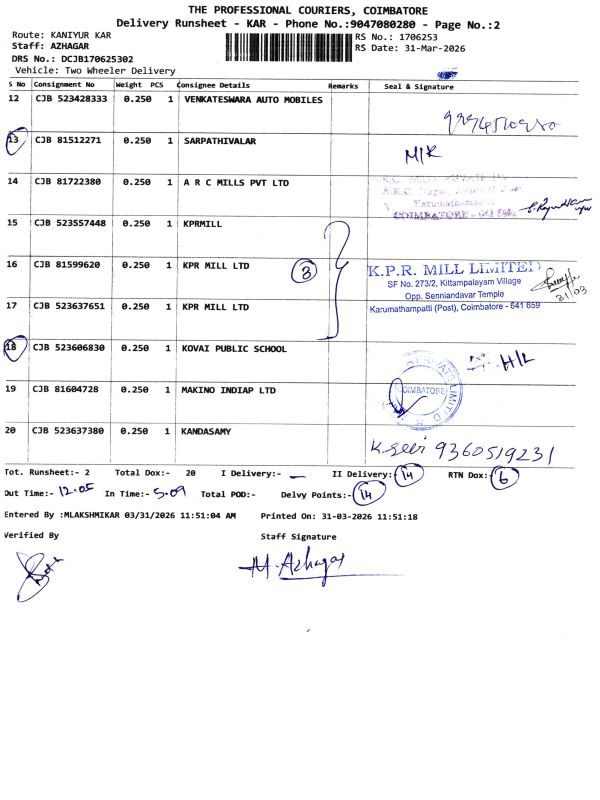 THE PROFESSIONAL COURIERS, COIMBATORE
Delivery Runsheet - KAR - Phone No.:9047080280 - Page No.:2
Route: KANIYUR KAR
RS No.: 1706253
Staff: AZHAGAR
RS Date: 31-Mar-2026
DRS No.: DCJB170625302
Vehicle: Two Wheeler Delivery
S No Consignment No Weight PCS Consignee Details Remarks Seal & Signature
12 CJB 523428333 0.250 1 VENKATESWARA AUTO MOBILES
13 CJB 81512271 0.250 1 SARPATHIVALAR
14 CJB 81722380 0.250 1 A R C MILLS PVT LTD
COIMBATORE
15 CJB 523557448 0.250 1 KPRMILL
16 CJB 81599620 0.250 1 KPR MILL LTD 3
K.P.R. MILL LIMITED
SF No. 273/2, Kittampalayam Village
Opp. Senniandavar Temple
Karumathampatti (Post), Coimbatore - 641 659
31/03
17 CJB 523637651 0.250 1 KPR MILL LTD
18 CJB 523606830 0.250 1 KOVAI PUBLIC SCHOOL
19 CJB 81604728 0.250 1 MAKINO INDIAP LTD
COIMBATORE
20 CJB 523637380 0.250 1 KANDASAMY
9360519231
Tot. Runsheet:- 2 Total Dox:- 20 I Delivery:- – II Delivery:- 14 RTN Dox:- 6
Out Time:- 12.05 In Time:- 5.09 Total POD:- Delvy Points:- 14
Entered By :MLAKSHMIKAR 03/31/2026 11:51:04 AM Printed On: 31-03-2026 11:51:18
Verified By Staff Signature
M. Azhagar